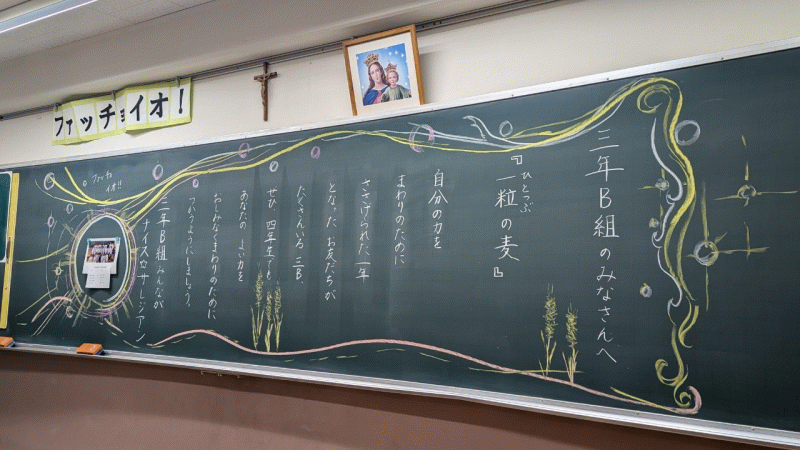 ファッチョイオ！
ファッチョ
イオ!!
三年B組のみなさんへ
『一粒の麦』
ひとつぶ
自分の力を
まわりのために
ささげられた一年
となった お友だちが
たくさんいる 三B。
ぜひ 四年生でも
あなたの よい力を
おしみなくまわりのために
つかうようにしましょう。
三年B組みんなが
ナイスなサレジアン!